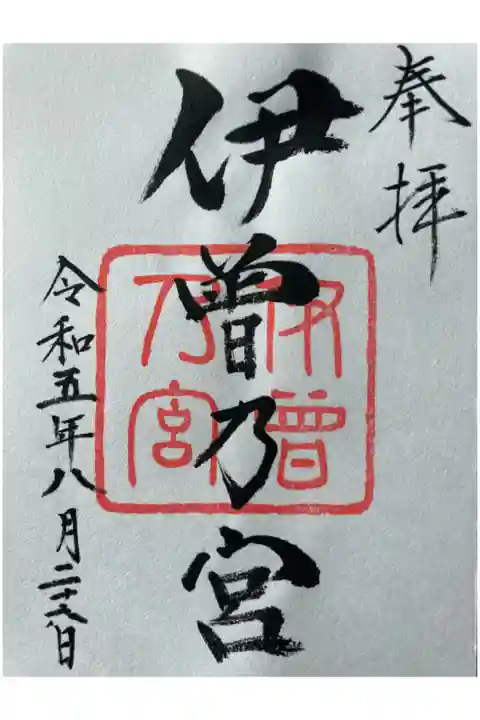 奉拝
伊曽乃宮
伊曽
乃宮
令和五年八月二十六日